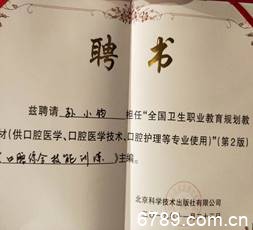 聘 书
兹聘请 孙小钧 担任“全国卫生职业教育规划教
材(供口腔医学、口腔医学技术、口腔护理等专业使用)”(第2版)
《口腔综合技能训练》主编。
北京科学技术出版社有限公司
6789.com.cn